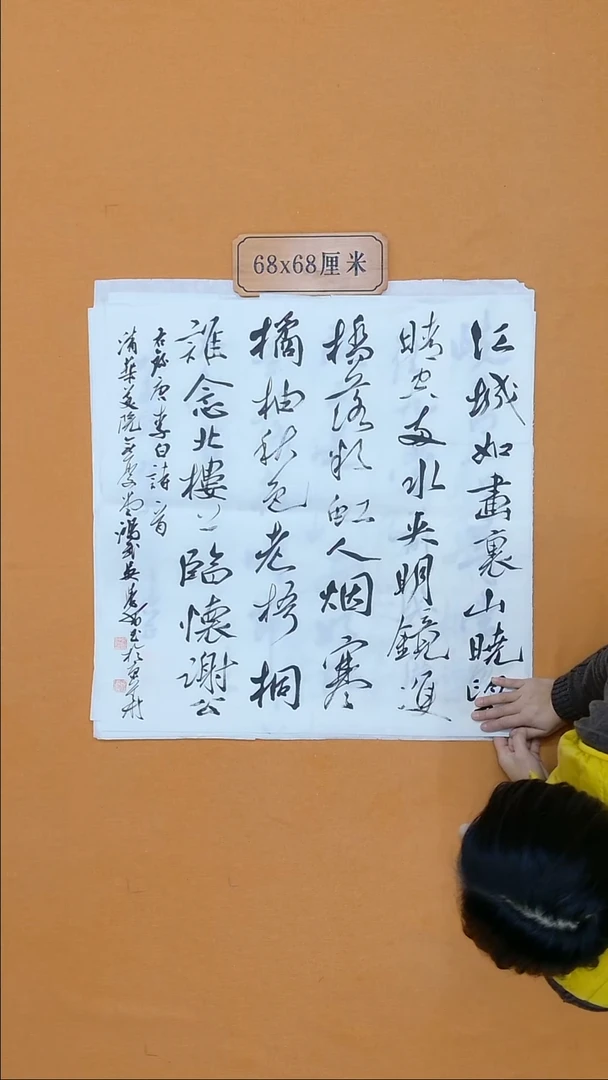 68x68厘米
江城如畫裏山曉望
晴空两水夹明鏡双
橋落彩虹人烟寒
橘柚秋色老梧桐
誰念北樓上臨懷謝公
右録唐李白詩一首
清華美院 吴 书於京華